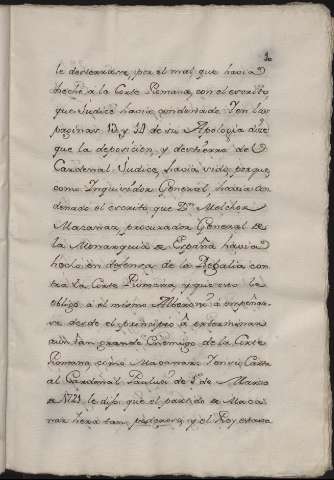 le desterrase, por el mal que havia
hecho a la Corte Romana, con el escrito
que Judice havia condenado. Y en las
paginas 10 y 11 de su Apologia dice
que la deposicion, y destierro de
Cardenal Judice, havia sido porque
como Inquisidor General, havia con
denado el escrito que Dn Melchor
Macanaz, procurador General de
la Monarquia de España havia
hecho en defensa de la Regalia con
tra la Corte Romana, y que esto le
obligò à el mismo Alberoni à empeñar
se desde el principio â exterminar
aun tan grande Enemigo de la Corte
Romana como Macanaz. Y en su Carta
al Cardenal Pauluci de 1º de Marzo
de 1721 le dijo que el partido de Maca
naz hera tan poderoso, y el Rey estava